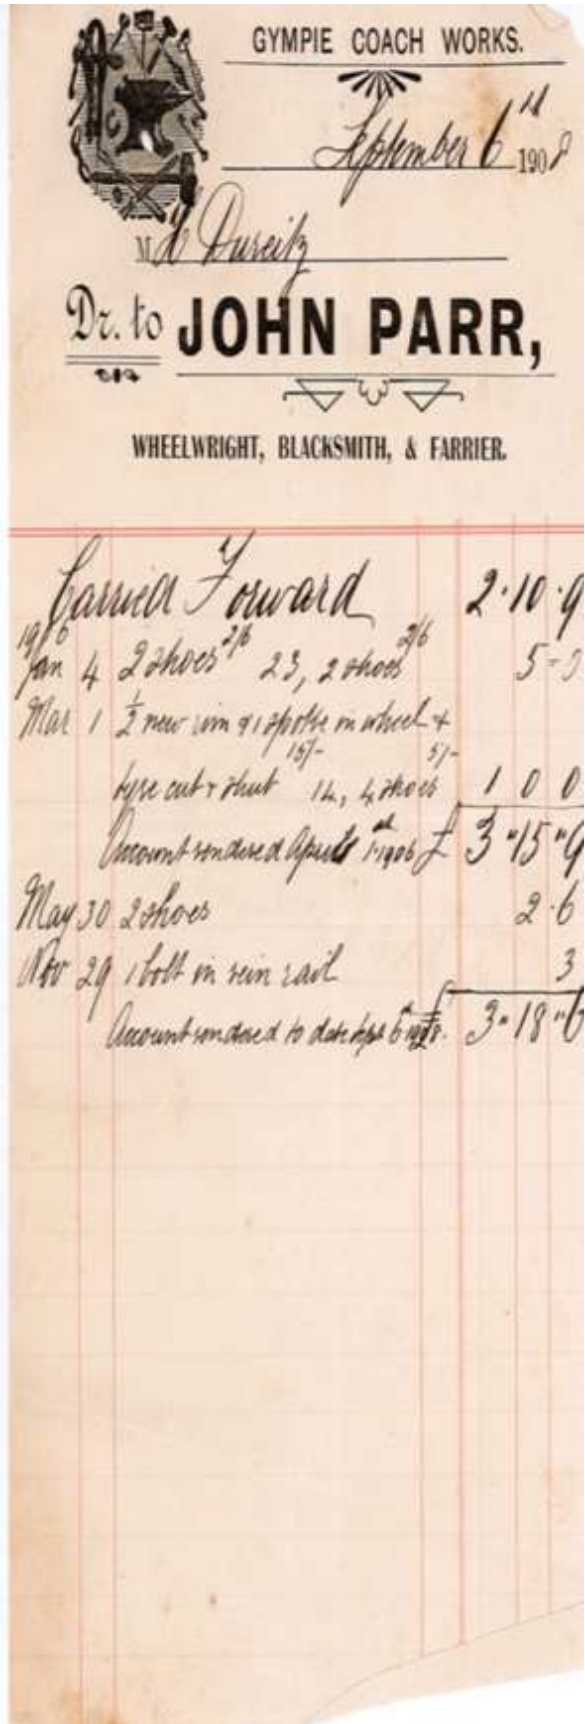 GYMPIE COACH WORKS.
September 6th 1908
M
Dr. to JOHN PARR,
WHEELWRIGHT, BLACKSMITH, & FARRIER.
Carried Forward 2·10·9
1906
Jan 4 2 shoes 2/6 23, 2 shoes 2/6 5=0
Mar 1 ½ new rim & 1 spoke in wheel &
tyre cut & shut 15/- 14, 4 shoes 5/- 1 0 0
Account rendered April 1st 1906 £ 3"15"9
May 30 2 shoes 2·6
Nov 29 1 bolt in rein rail 3
Account rendered to date Sept 6th 1908. £ 3"18"6